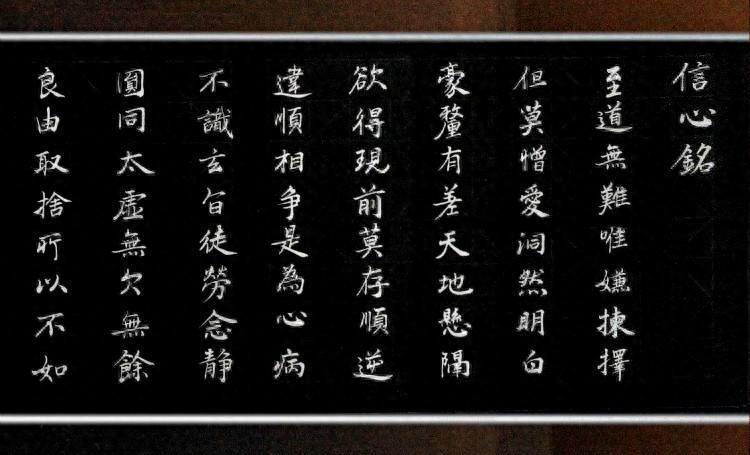 信心銘
至道無難唯嫌揀擇
但莫憎愛洞然明白
豪釐有差天地懸隔
欲得現前莫存順逆
違順相争是為心病
不識玄旨徒勞念静
圓同太虛無欠無餘
良由取捨所以不如